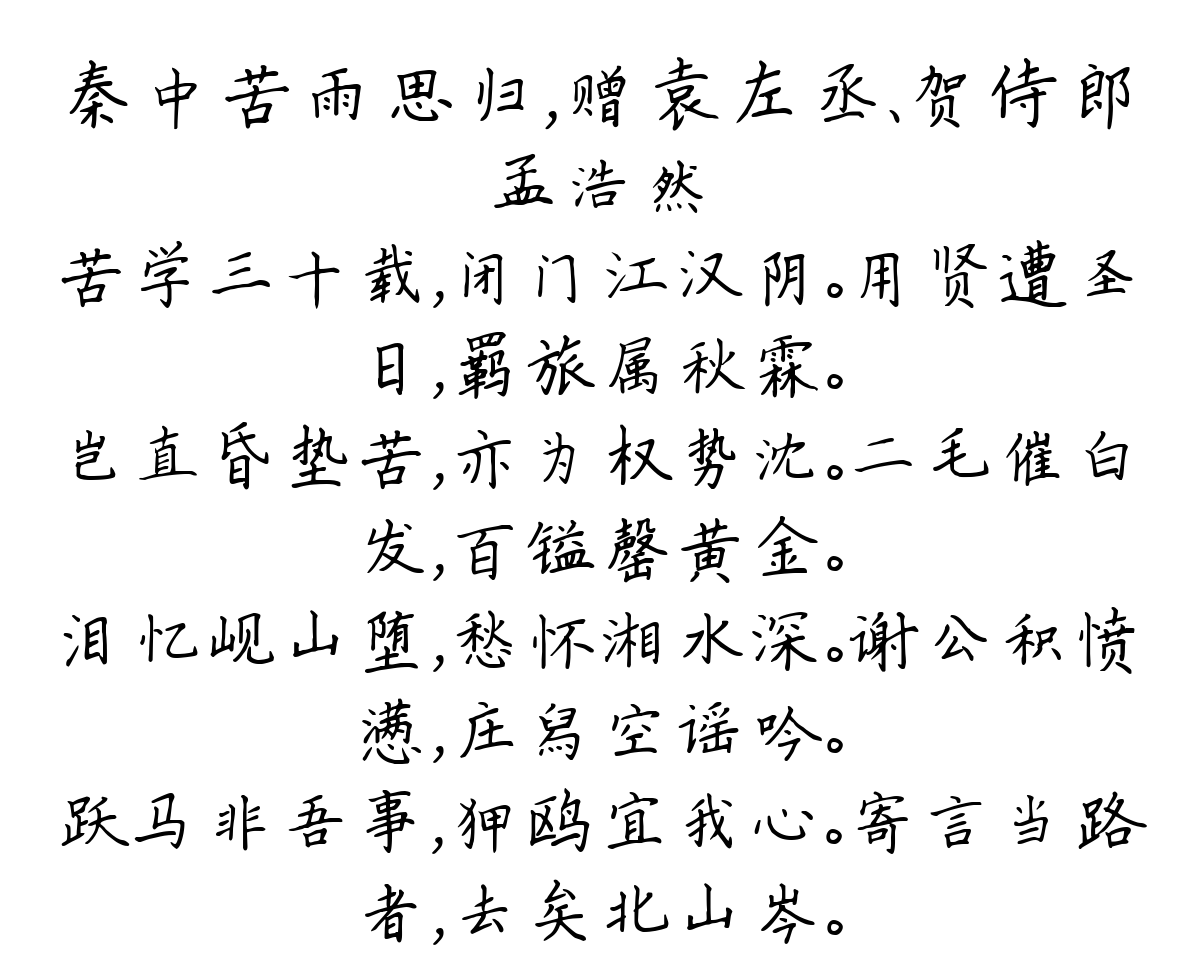 秦中苦雨思归,赠袁左丞、贺侍郎
孟浩然
苦学三十载,闭门江汉阴。用贤遭圣
日,羁旅属秋霖。
岂直昏垫苦,亦为权势沈。二毛催白
发,百镒罄黄金。
泪忆岘山堕,愁怀湘水深。谢公积愤
懑,庄舄空谣吟。
跃马非吾事,狎鸥宜我心。寄言当路
者,去矣北山岑。